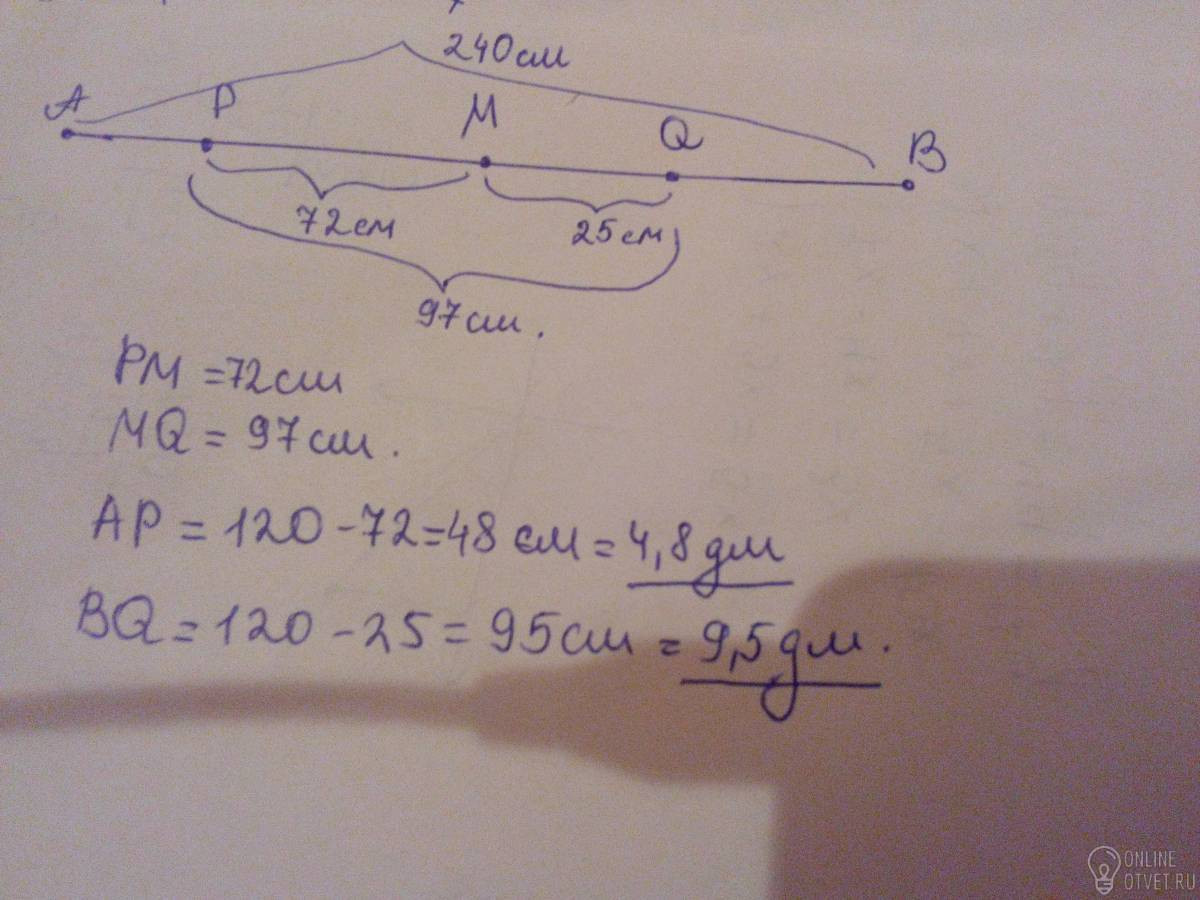 240см
A P M Q B
72см 25см
97см.
PM = 72см
MQ = 97см.
AP = 120 - 72 = 48 см = 4,8 дм
BQ = 120 - 25 = 95см = 9,5 дм.
ONLINE
OTVET.RU